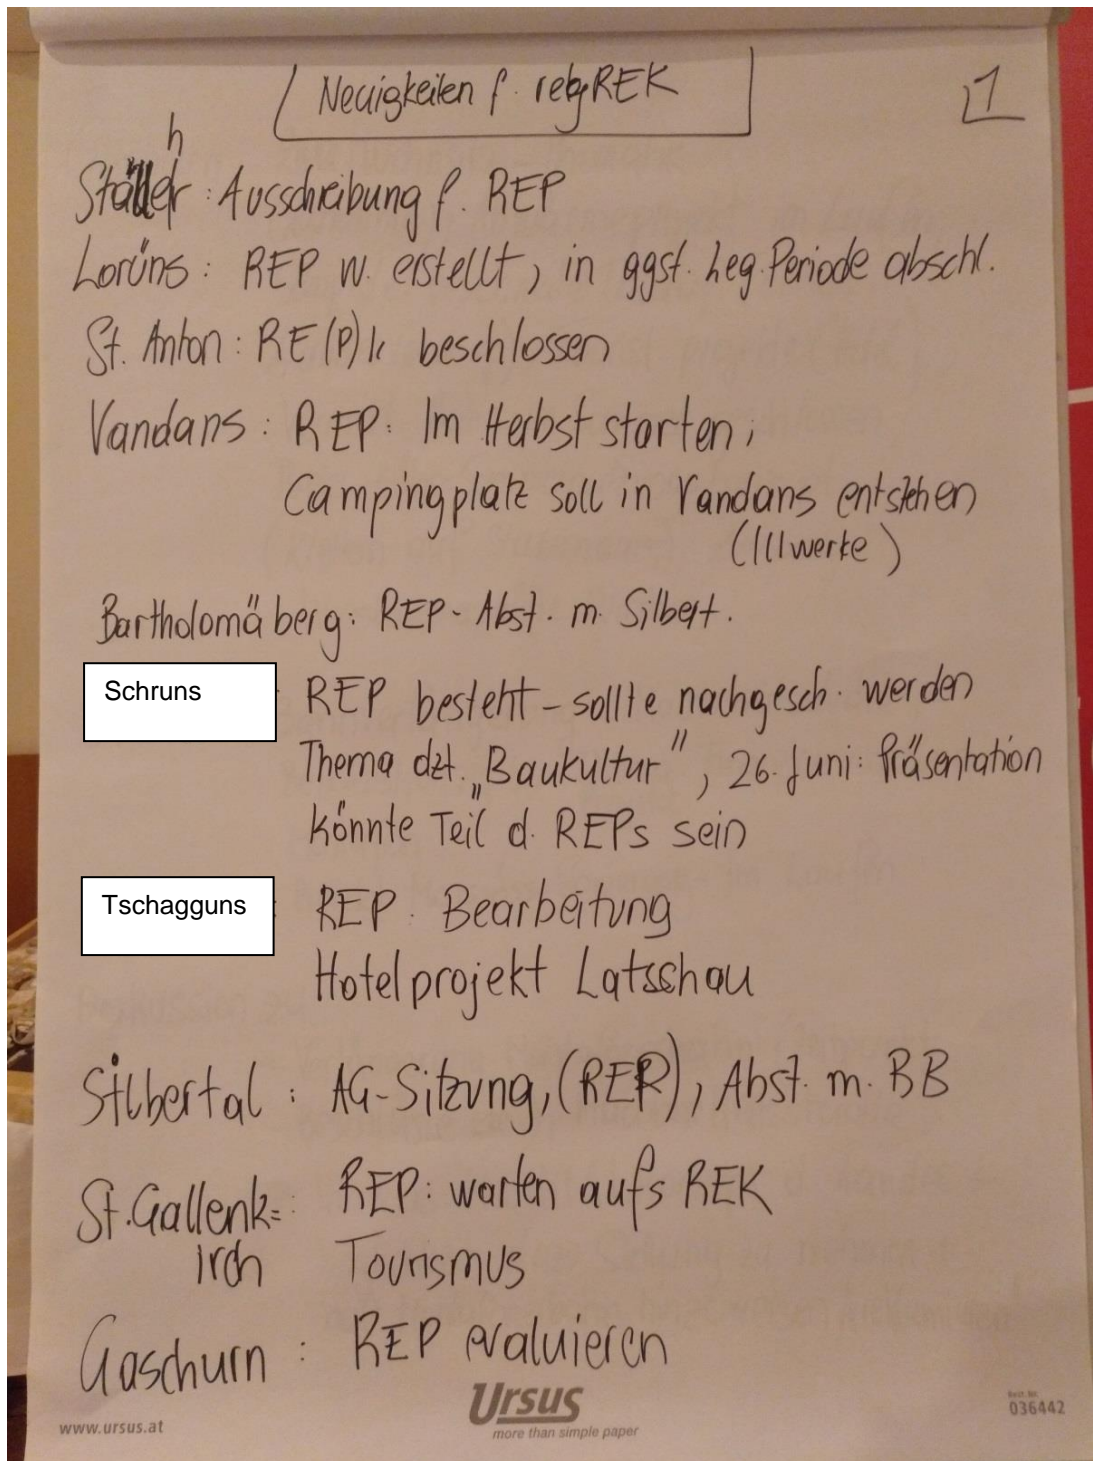 Neuigkeiten f. regREK
1
h
Stallehr: Ausschreibung f. REP
Lorüns: REP w. erstellt, in ggst. Leg.Periode abschl.
St. Anton: RE(P)k beschlossen
Vandans: REP: Im Herbst starten;
Campingplatz soll in Vandans entstehen
(Illwerke)
Bartholomäberg: REP- Abst. m. Silbert.
Schruns : REP besteht – sollte nachgesch. werden
Thema dzt. „Baukultur", 26. Juni: Präsentation
könnte Teil d. REPs sein
Tschagguns : REP. Bearbeitung
Hotelprojekt Latsschau
Silbertal: AG-Sitzung, (REP), Abst. m. BB
St.Gallenk= : REP: warten aufs REK
irch Tourismus
Gaschurn: REP evaluieren
www.ursus.at
Ursus
more than simple paper
Best. Nr.
036442